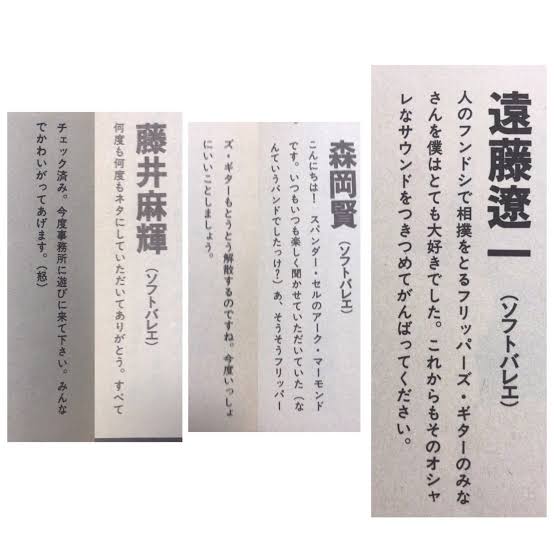 遠藤遼一
(ソフトバレエ)
人のフンドシで相撲をとるフリッパーズ・ギターのみな
さんを僕はとても大好きでした。これからもそのオシャ
レなサウンドをつきつめてがんばってください。
森岡賢
(ソフトバレエ)
こんにちは! スパンダー・セルのアーク・マーモンド
です。いつもいつも楽しく聞かせていただいていた(な
んていうバンドでしたっけ?)あ、そうそうフリッパー
ズ・ギターもとうとう解散するのですね。今度いっしょ
にいいことしましょう。
藤井麻輝
(ソフトバレエ)
何度も何度もネタにしていただいてありがとう。すべて
チェック済み。今度事務所に遊びに来て下さい。みんな
でかわいがってあげます。(怒)